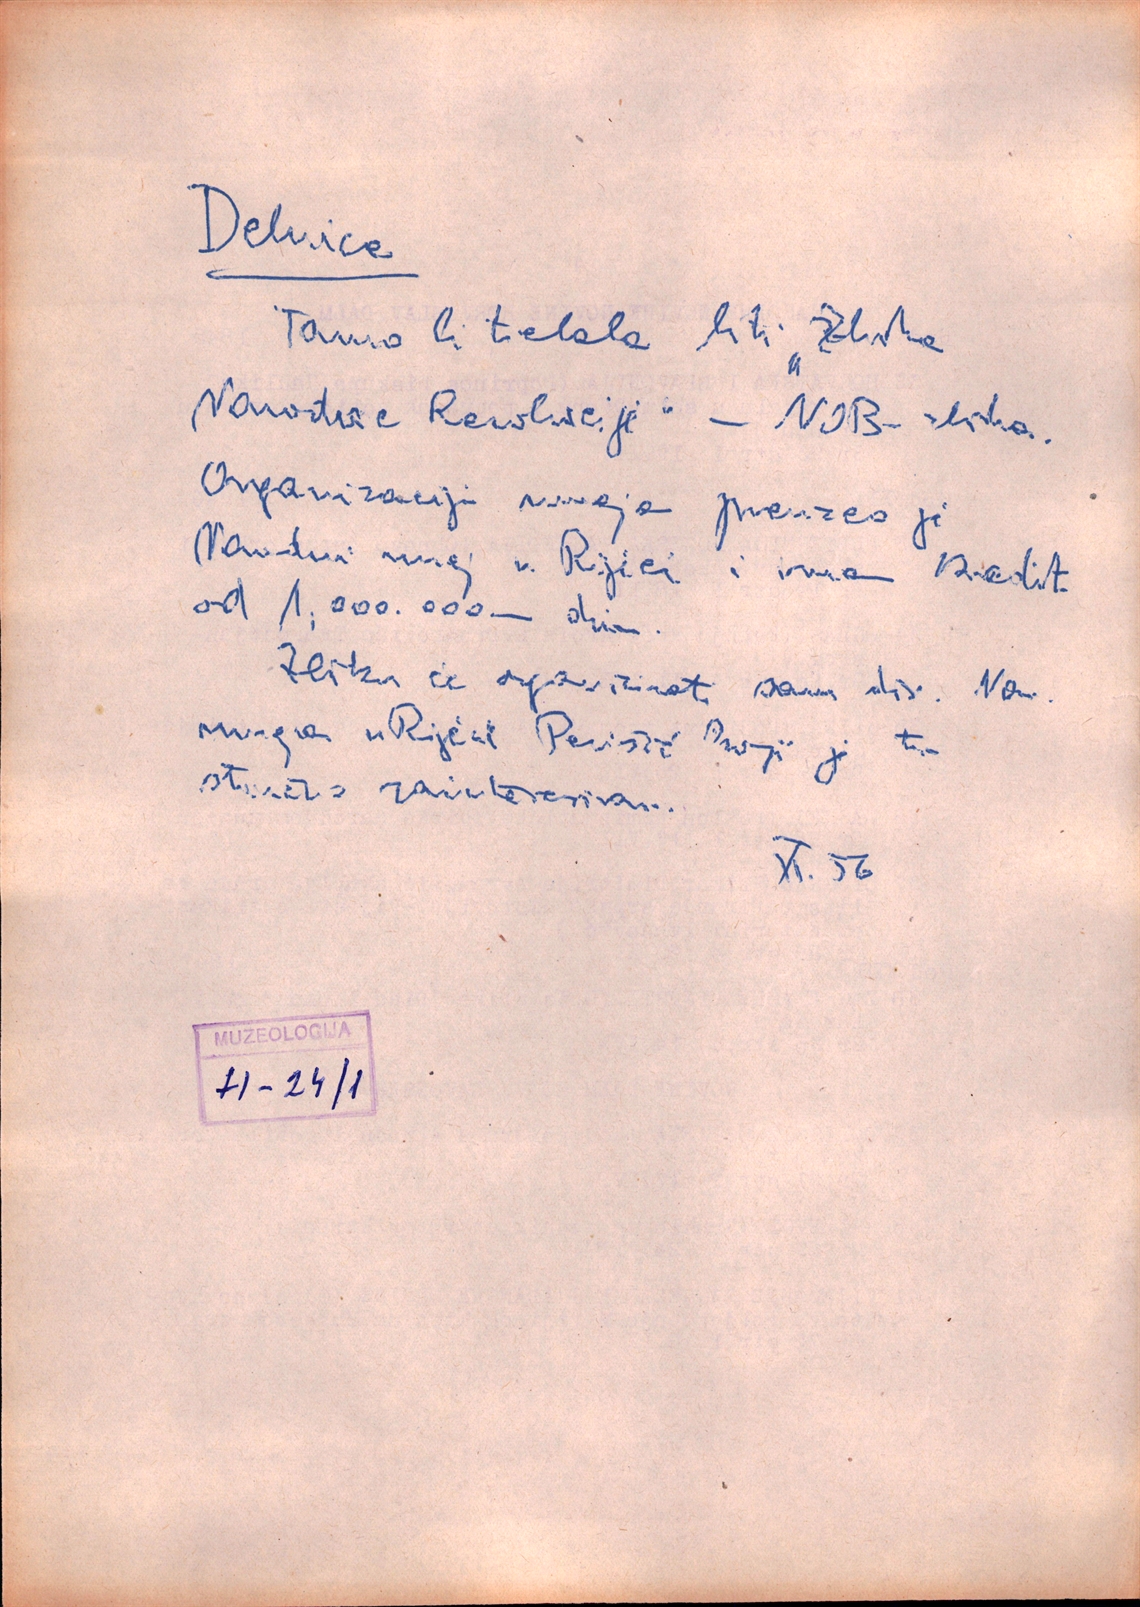 Delnice
Tamo bi trebala biti „Zbirka
Narodne Revolucije" — NOB- zbirka.
Organizaciju muzeja preuzeo je
Narodni muzej u Rijeci i ima kredit
od 1,000.000— din.
Zbirku će organizirati sam dir. Nar.
muzeja u Rijeci Perišić koji je tu
stručno zainteresiran.
XI. 56
MUZEOLOGIJA
II-24/1